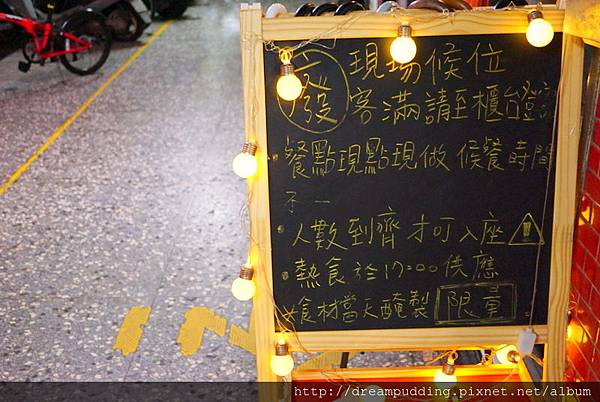 發 現場候位
客滿請至櫃台登
•餐點現點現做 候餐時間
不一
•人數到齊才可入座
•熱食於17:00供應
※食材當天醃製 限量
http://dreampudding.pixnet.net/album